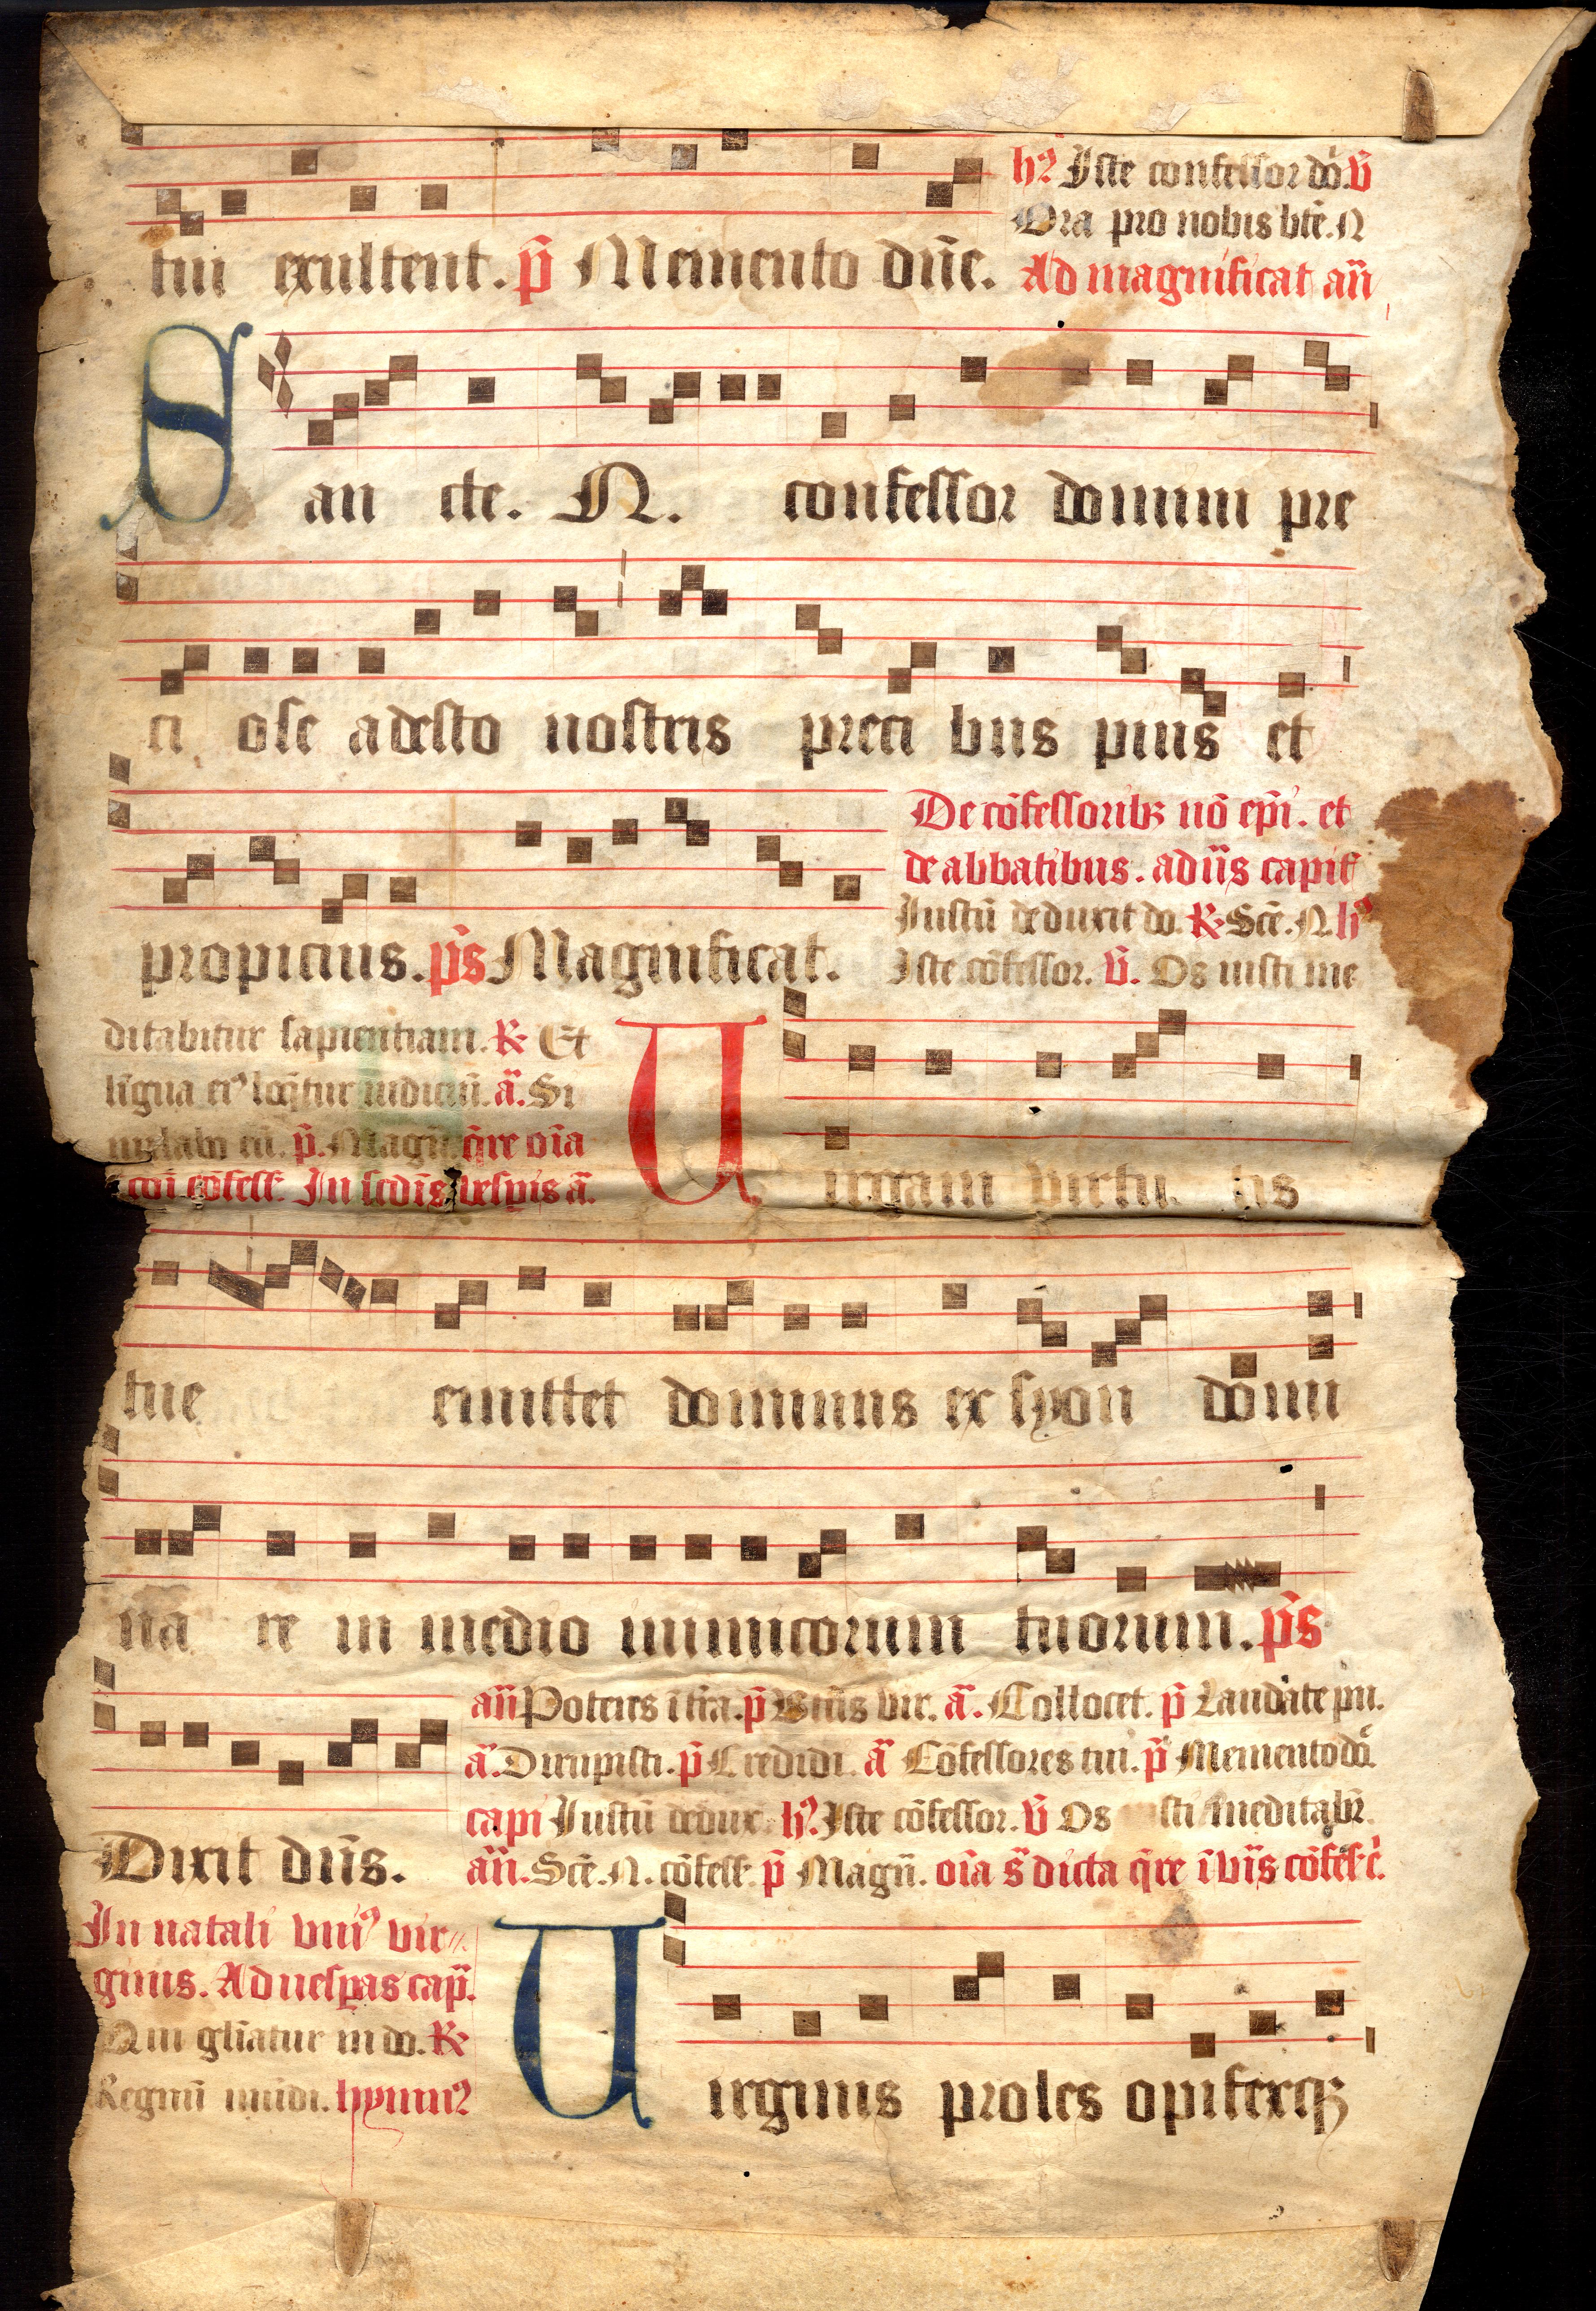 tui exultent. p̄ Memento dn̄e.
hꝰ Iste confessor dō. v̄
Ora pro nobis bt̄e. N
Ad magnificat an̄
San cte. N. confessor domini pre
ci ose adesto nostris preci bus pius et
propicius. p̄s Magnificat.
De cōfessoribꝫ nō ep̄i. et
de abbatibus. ad ūs capit̄
Iustū deduxit do. R Sc̄e. N. hꝰ
Iste cōfessor. v̄. Os iusti me
ditabitur sapientiam. R Et
līgua eiꝰ loq̄tur iudiciū. ā. Si
milabo eū. p̄. Magn̄. q̄re oīa
cōi cōfess. In sc̄dis vesp̄is ā.
Uirgam virtu tis
tue emittet dominus ex syon domi
na re in medio inimicorum tuorum. p̄s
Dixit dn̄s.
an̄ Potens ī t̄ra. p̄ Bt̄us vir. ā. Collocet. p̄ Laudate pu.
ā. Dirupisti. p̄ Credidi. ā Cōfessores tui. p̄ Memento dō
capi Iustū dedux. hꝰ. Iste cōfessor. v̄ Os sti meditabr̄.
an̄. Sc̄e. N. cōfess. p̄ Magn̄. oīa s̄ dicta q̄re ī
In natali vniꝰ vir
ginis. Ad uesp̄as cap̄.
Qui gl̄iatur in do. R
Regnū mūdi. hymnꝰ
Uirginis proles opifexqꝫ